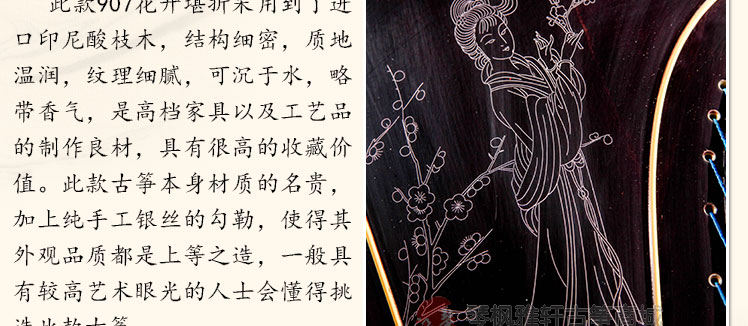 此款907花开堪折采用到了进
口印尼酸枝木，结构细密，质地
温润，纹理细腻，可沉于水，略
带香气，是高档家具以及工艺品
的制作良材，具有很高的收藏价
值。此款古筝本身材质的名贵，
加上纯手工银丝的勾勒，使得其
外观品质都是上等之造，一般具
有较高艺术眼光的人士会懂得挑
选此款古筝
琴枫雅轩古筝商城